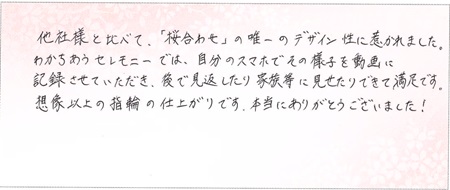 他社様と比べて、「桜合わせ」の唯一のデザイン性に惹かれました。
わかちあうセレモニーでは、自分のスマホでその様子を動画に
記録させていただき、後で見返したり家族等に見せたりできて満足です。
想像以上の指輪の仕上がりです。本当にありがとうございました!